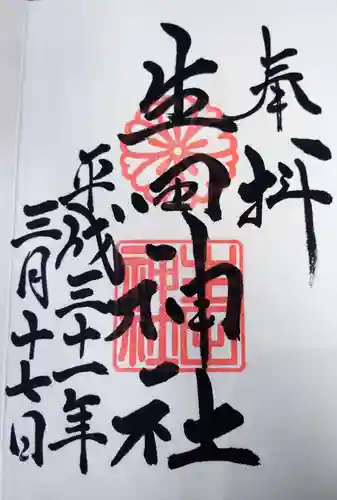 奉拝
生田神社
平成三十一年
三月十七日